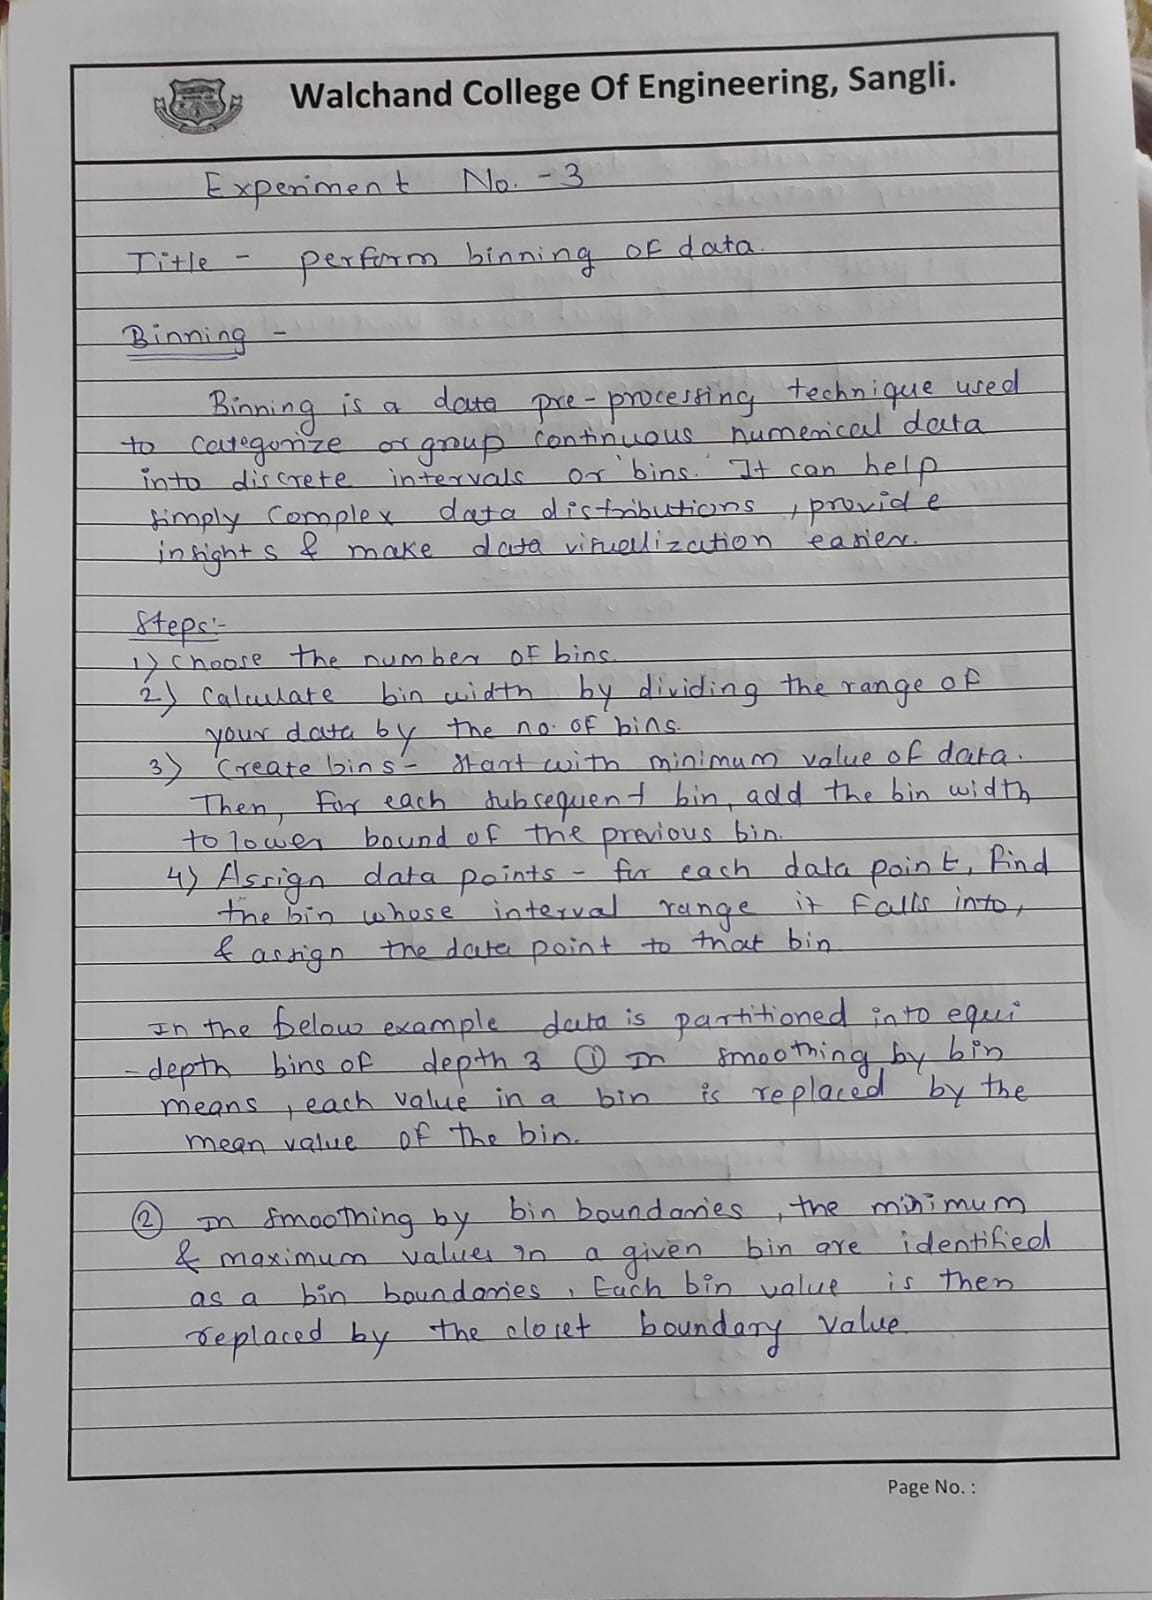 Walchand College Of Engineering, Sangli.
Experiment No. - 3
Title - perform binning of data.
Binning -
Binning is a data pre-processing technique used
to categorize or group continuous numerical data
into discrete intervals or 'bins.' It can help
simply complex data distributions, provide
insights & make data visuellization easier.
Steps:-
1) choose the number of bins.
2) Calculate bin width by dividing the range of
your data by the no. of bins.
3) Create bins - start with minimum value of data.
Then, for each subsequent bin, add the bin width
to lower bound of the previous bin.
4) Assign data points - for each data point, find
the bin whose interval range it falls into,
& assign the data point to that bin
In the below example data is partitioned into equi
-depth bins of depth 3 ① In smoothing by bin
means, each value in a bin is replaced by the
mean value of the bin.
② In smoothing by bin boundaries, the minimum
& maximum values in a given bin are identified
as a bin boundaries, Each bin value is then
replaced by the closet boundary value.
Page No. :